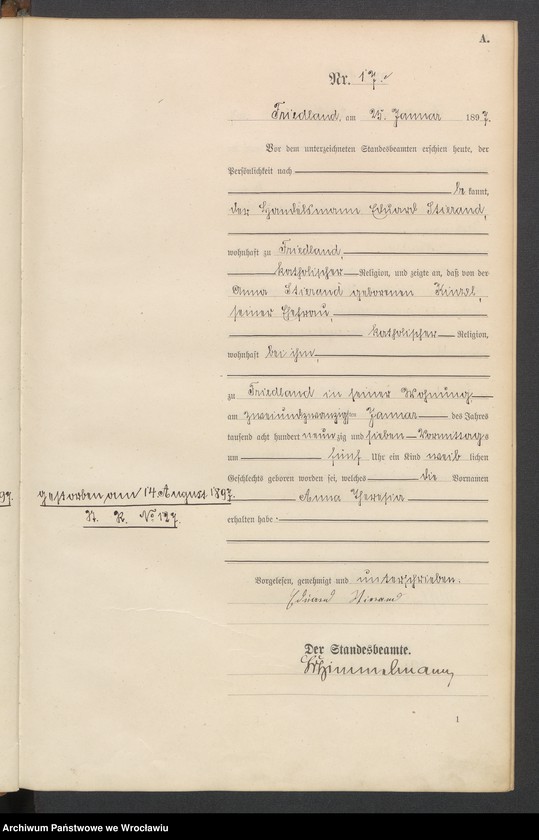 A.
Nr. 17.
Friedland, am 25. Januar 1897.
Vor dem unterzeichneten Standesbeamten erschien heute, der
Persönlichkeit nach
be kannt,
der Handelsmann Eduard Stierand,
wohnhaft zu Friedland,
katholischer Religion, und zeigte an, daß von der
Anna Stierand geborenen Kinzel,
seiner Ehefrau,
katholischer Religion,
wohnhaft bei ihm,
zu Friedland in seiner Wohnung
am zweiundzwanzigsten Januar des Jahres
tausend acht hundert neunzig und sieben Vormittags
um fünf Uhr ein Kind weiblichen
Geschlechts geboren worden sei, welches die Vornamen
Anna Theresia
erhalten habe.
97. gestorben am 14. August 1897.
St. R. No 127.
Vorgelesen, genehmigt und unterschrieben.
Eduard Stierand
Der Standesbeamte.
Schimmelmann
1
Archiwum Państwowe we Wrocławiu